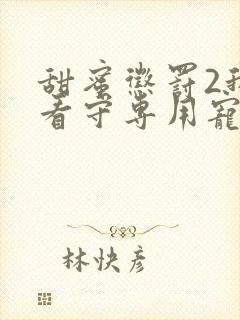 甜蜜惩罚2我
看守专用宠
林快彦